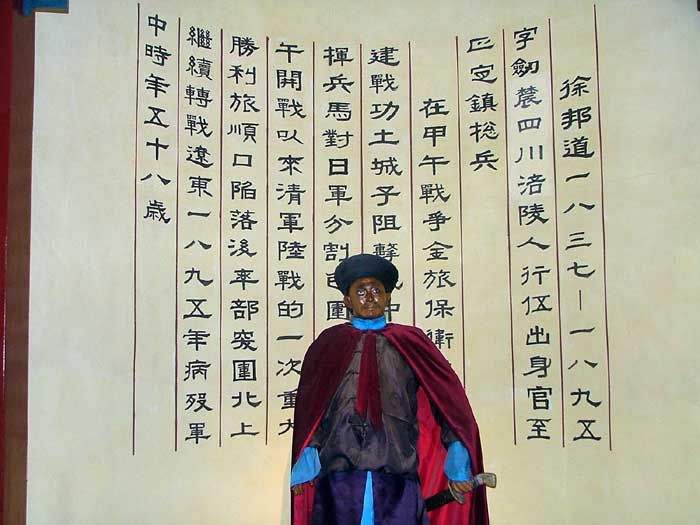 徐邦道一八三七—一八九五
字劒農四川涪陵人行伍出身官至
正定鎮総兵
在甲午戰爭金旅保衛
建戰功土城子阻擊戰中
揮兵馬對日軍分割包圍
午開戰以來清軍陸戰的一次重大
勝利旅順口陷落後率部突圍北上
繼續轉戰遼東一八九五年病歿軍
中時年五十八歲